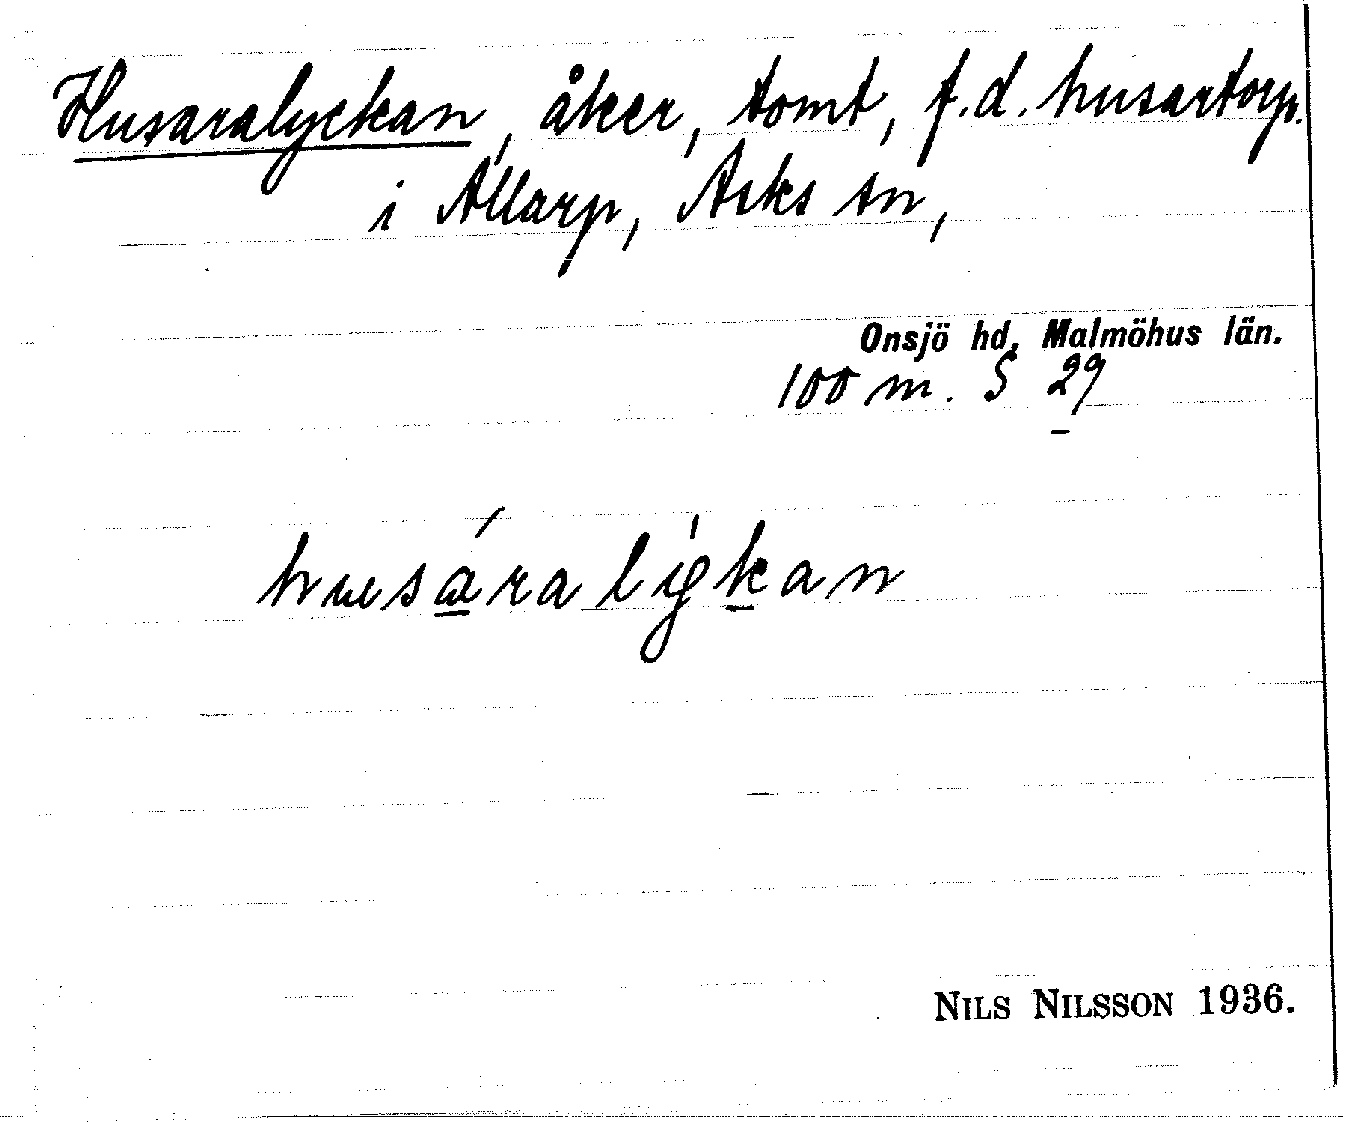 Husaralyckan, åker, tomt, f.d. husartorp.
i Allarp, Asks sn,
Onsjö hd, Malmöhus län.
100 m. S 29
husáraligkan
NILS NILSSON 1936.